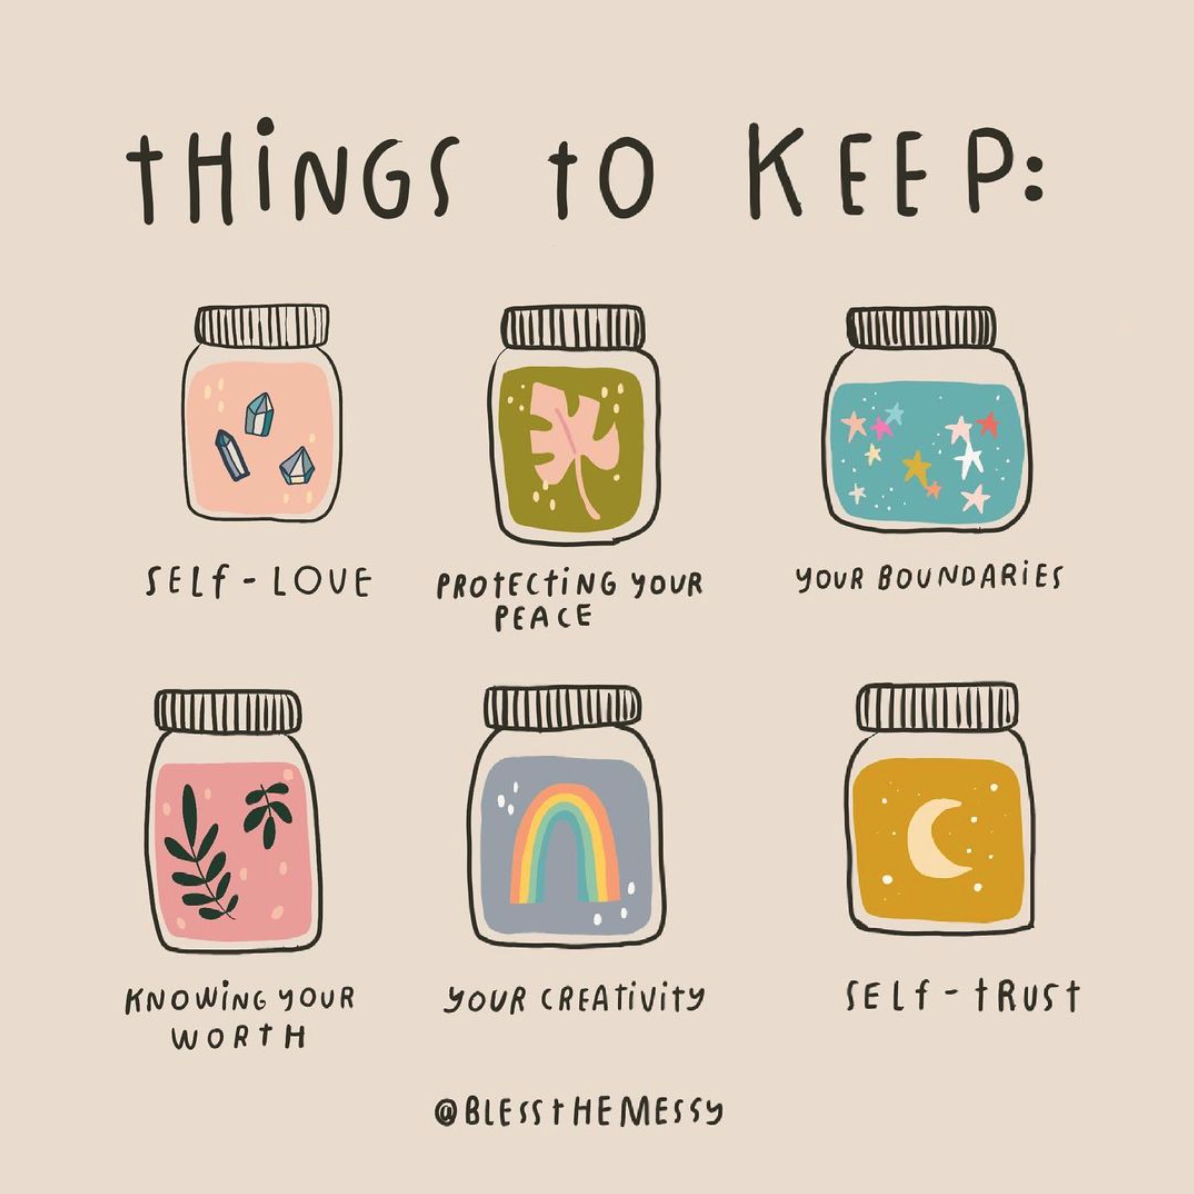 tHiNGS tO KEEP:
SELf - LOVE
PROtECtiNG YOUR
PEACE
YOUR BOUNDARiES
KNOWiNG YOUR
WORtH
YOUR CREAtiVitY
SELf - tRUSt
@BLESStHEMESSY